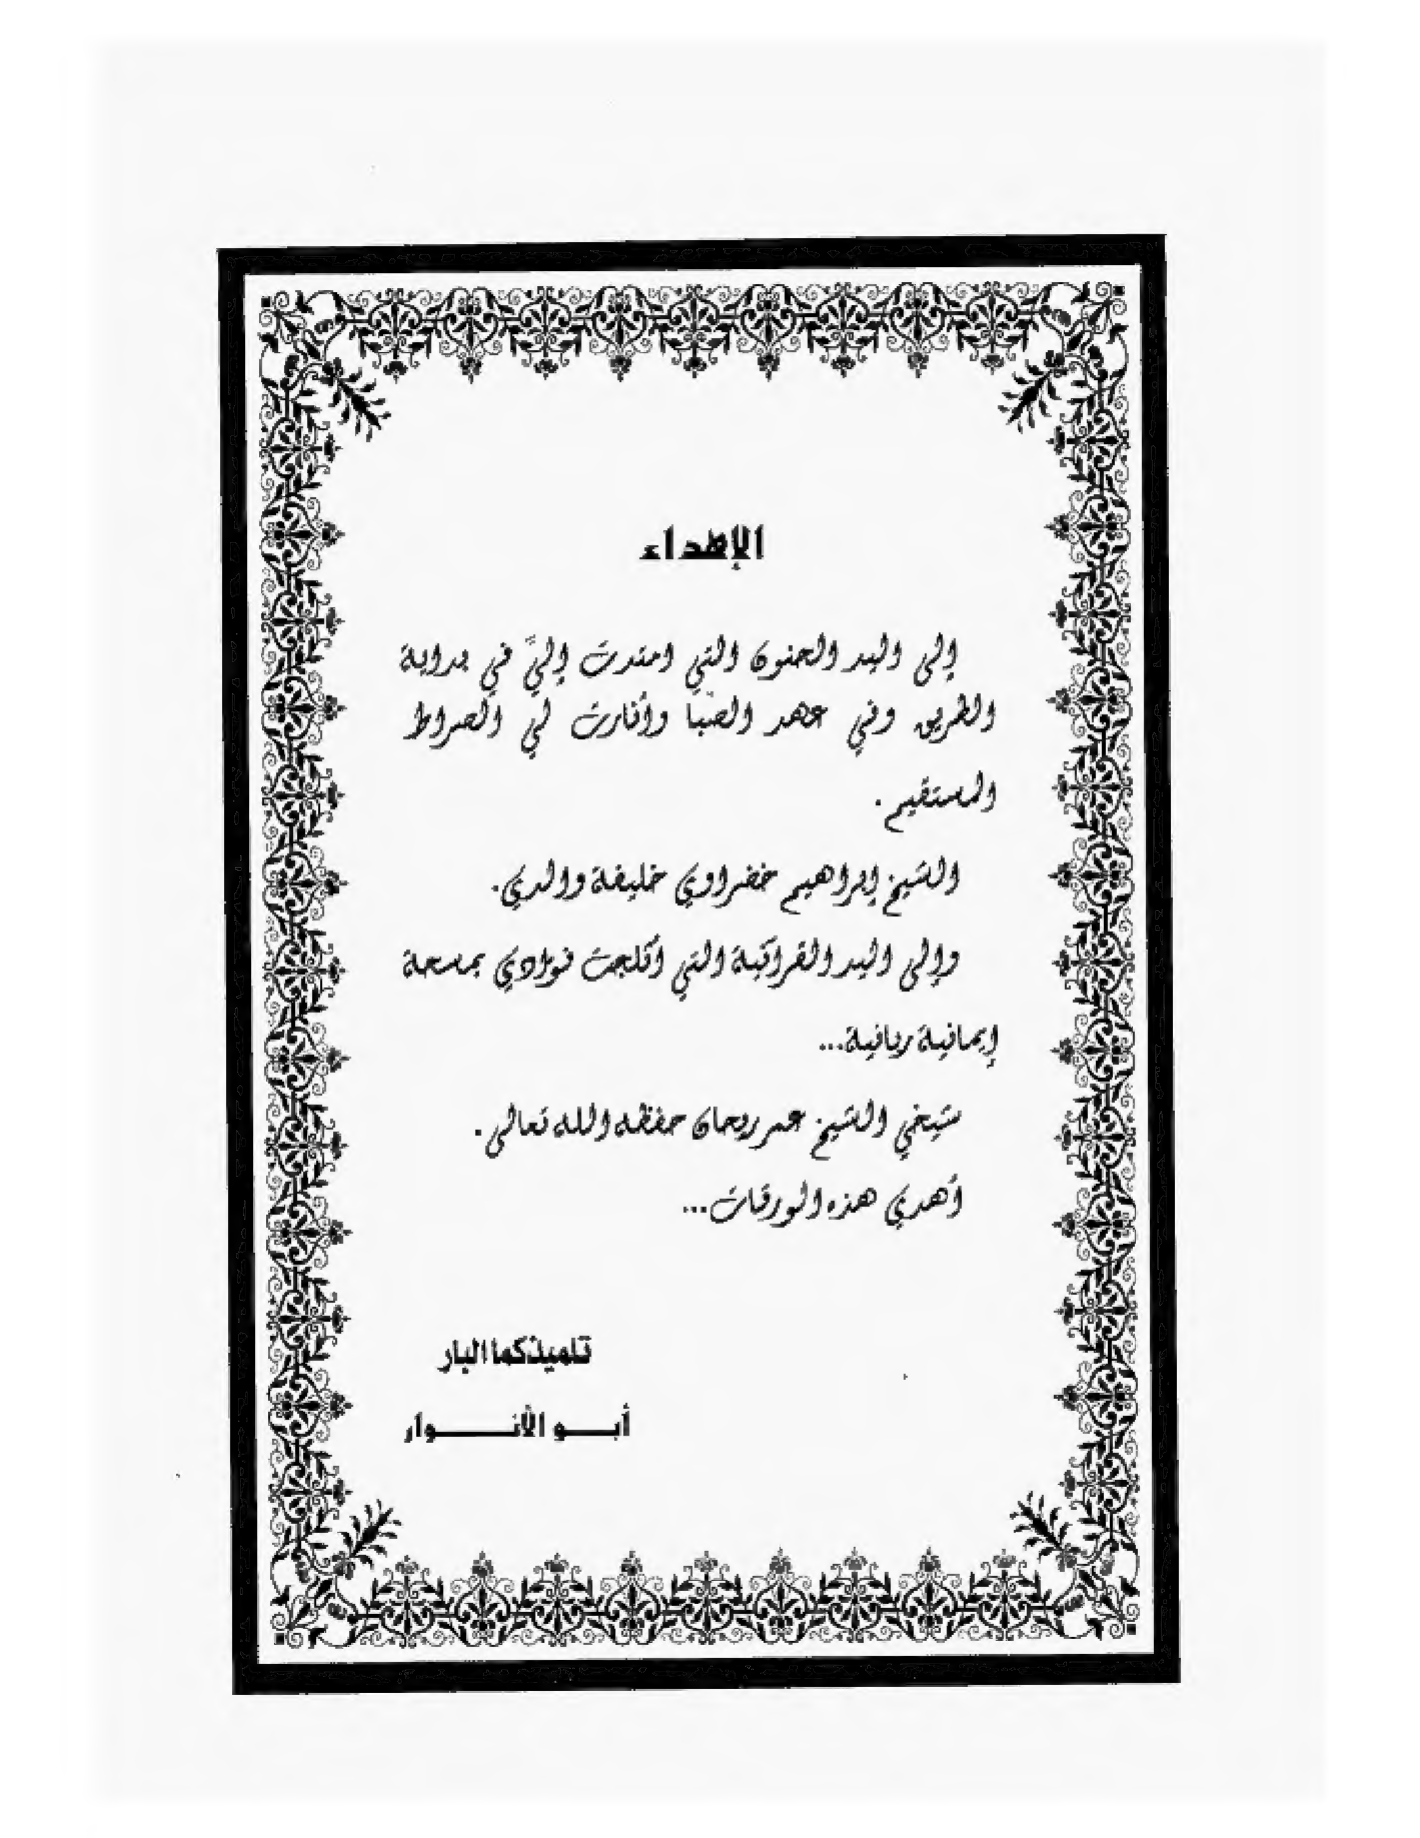 الإهداء
إلى اليد الحنون التي امتدت إليَّ في بداية
الطريق وفي عهد الصّبا وأنارت لي الصراط
المستقيم.
الشيخ إبراهيم خضراوي خليفة والدي.
وإلى اليد القرآنية التي أثلجت فؤادي بمسحة
إيمانية ربانية...
شيخي الشيخ عمر ريحان حفظه الله تعالى.
أهدي هذه الورقات...
تلميذكما البار
أبو الأنوار